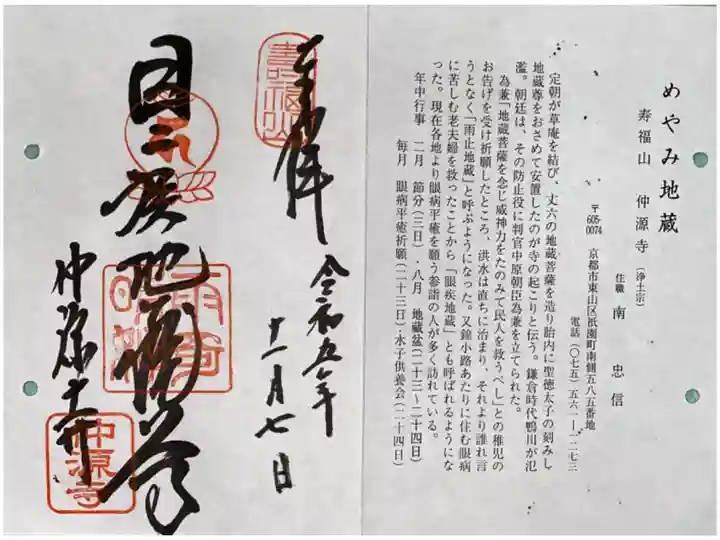 めやみ地蔵
寿福山 仲源寺(浄土宗)
住職 南 忠信
〒605-0074 京都市東山区祇園町南側五八五番地
電話(〇七五)五六一―一二七三
定朝が草庵を結び、丈六の地蔵菩薩を造り胎内に聖徳太子の刻みし
地蔵尊をおさめて安置したのが寺の起こりと伝う。鎌倉時代鴨川が氾
濫。朝廷は、その防止役に判官中原朝臣為兼を立てられた。
為兼「地蔵菩薩を念じ威神力をたのみて民人を救うべし」との稚児の
お告げを受け祈願したところ、洪水は直ちに治まり、それより誰れ言
うとなく「雨止地蔵」と呼ぶようになった。又鐘小路あたりに住む眼病
に苦しむ老夫婦を救ったことから「眼疾地蔵」とも呼ばれるようにな
った。現在各地より眼病平癒を願う参詣の人が多く訪れている。
年中行事 二月 節分(三日)・八月 地蔵盆(二十三〜二十四日)
毎月 眼病平癒祈願(二十三日)・水子供養会(二十四日)
奉拝 令和五年
十一月七日
寿福山
仲源寺
仲源寺